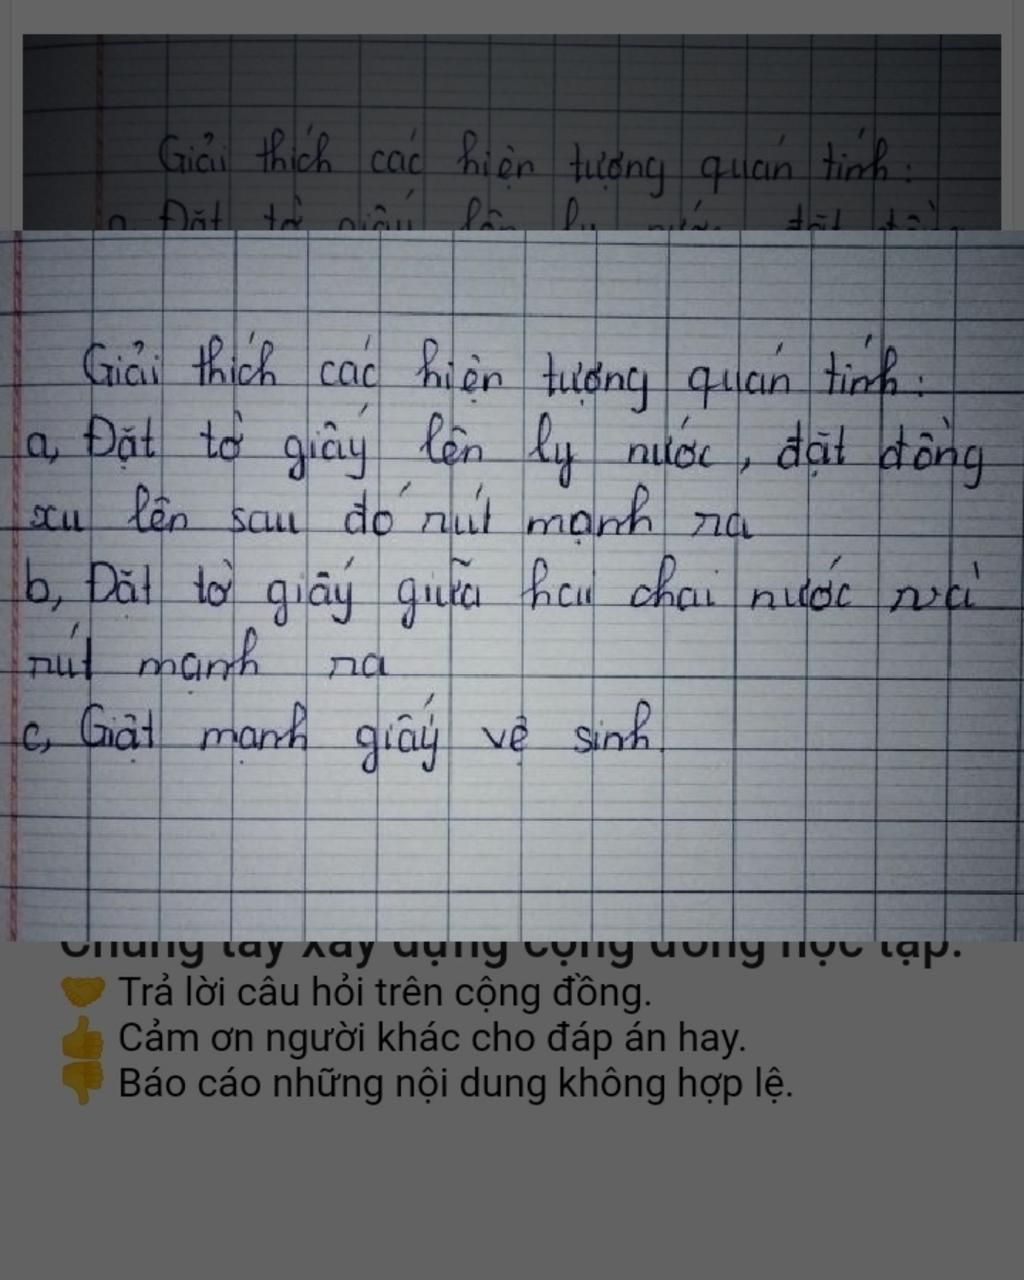 Giải thích các hiện tượng quán tính:
a, Đặt tờ giấy lên ly nước, đặt đồng
Giải thích các hiện tượng quán tính:
a, Đặt tờ giấy lên ly nước, đặt đồng
xu lên sau đó rút mạnh ra
b, Đặt tờ giấy giữa hai chai nước và
rút mạnh ra
c, Giật mạnh giấy vệ sinh
Chung tay xây dựng cộng đồng học tập.
🤝 Trả lời câu hỏi trên cộng đồng.
👍 Cảm ơn người khác cho đáp án hay.
👎 Báo cáo những nội dung không hợp lệ.